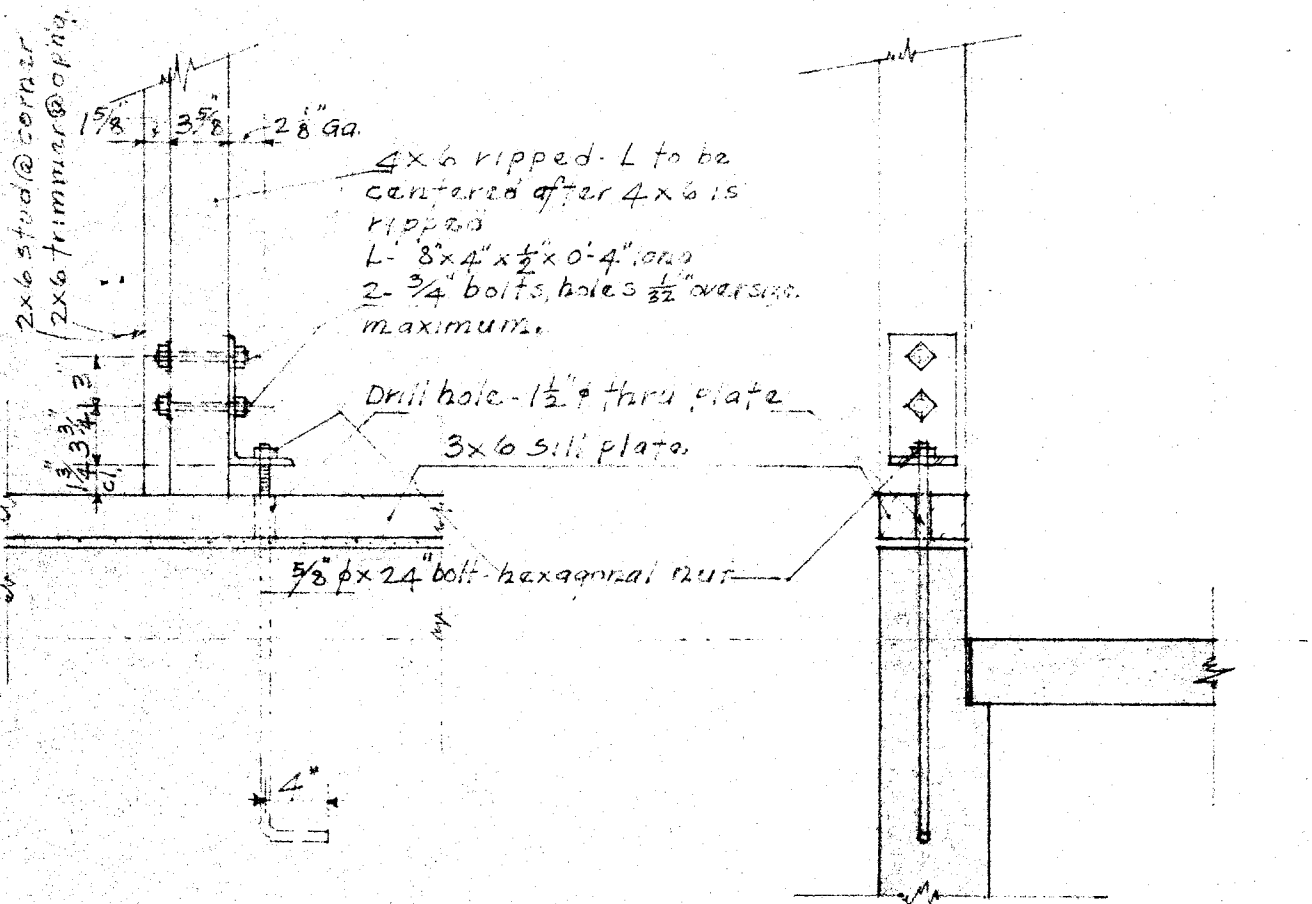 2x6 stud @ corner
2x6 trimmer @ opng.
1 5/8" 3 5/8" 2 1/8" Ga.
4x6 ripped - L to be
centered after 4x6 is
ripped
L- 8"x4"x1/2"x0'-4" long
2- 3/4" bolts, holes 1/32" oversize
maximum.
3"
3 3/4"
1 3/4" cl.
Drill hole - 1 1/2" ϕ thru plate
3x6 sill plate.
5/8" ϕ x 24" bolt - hexagonal nut
4"